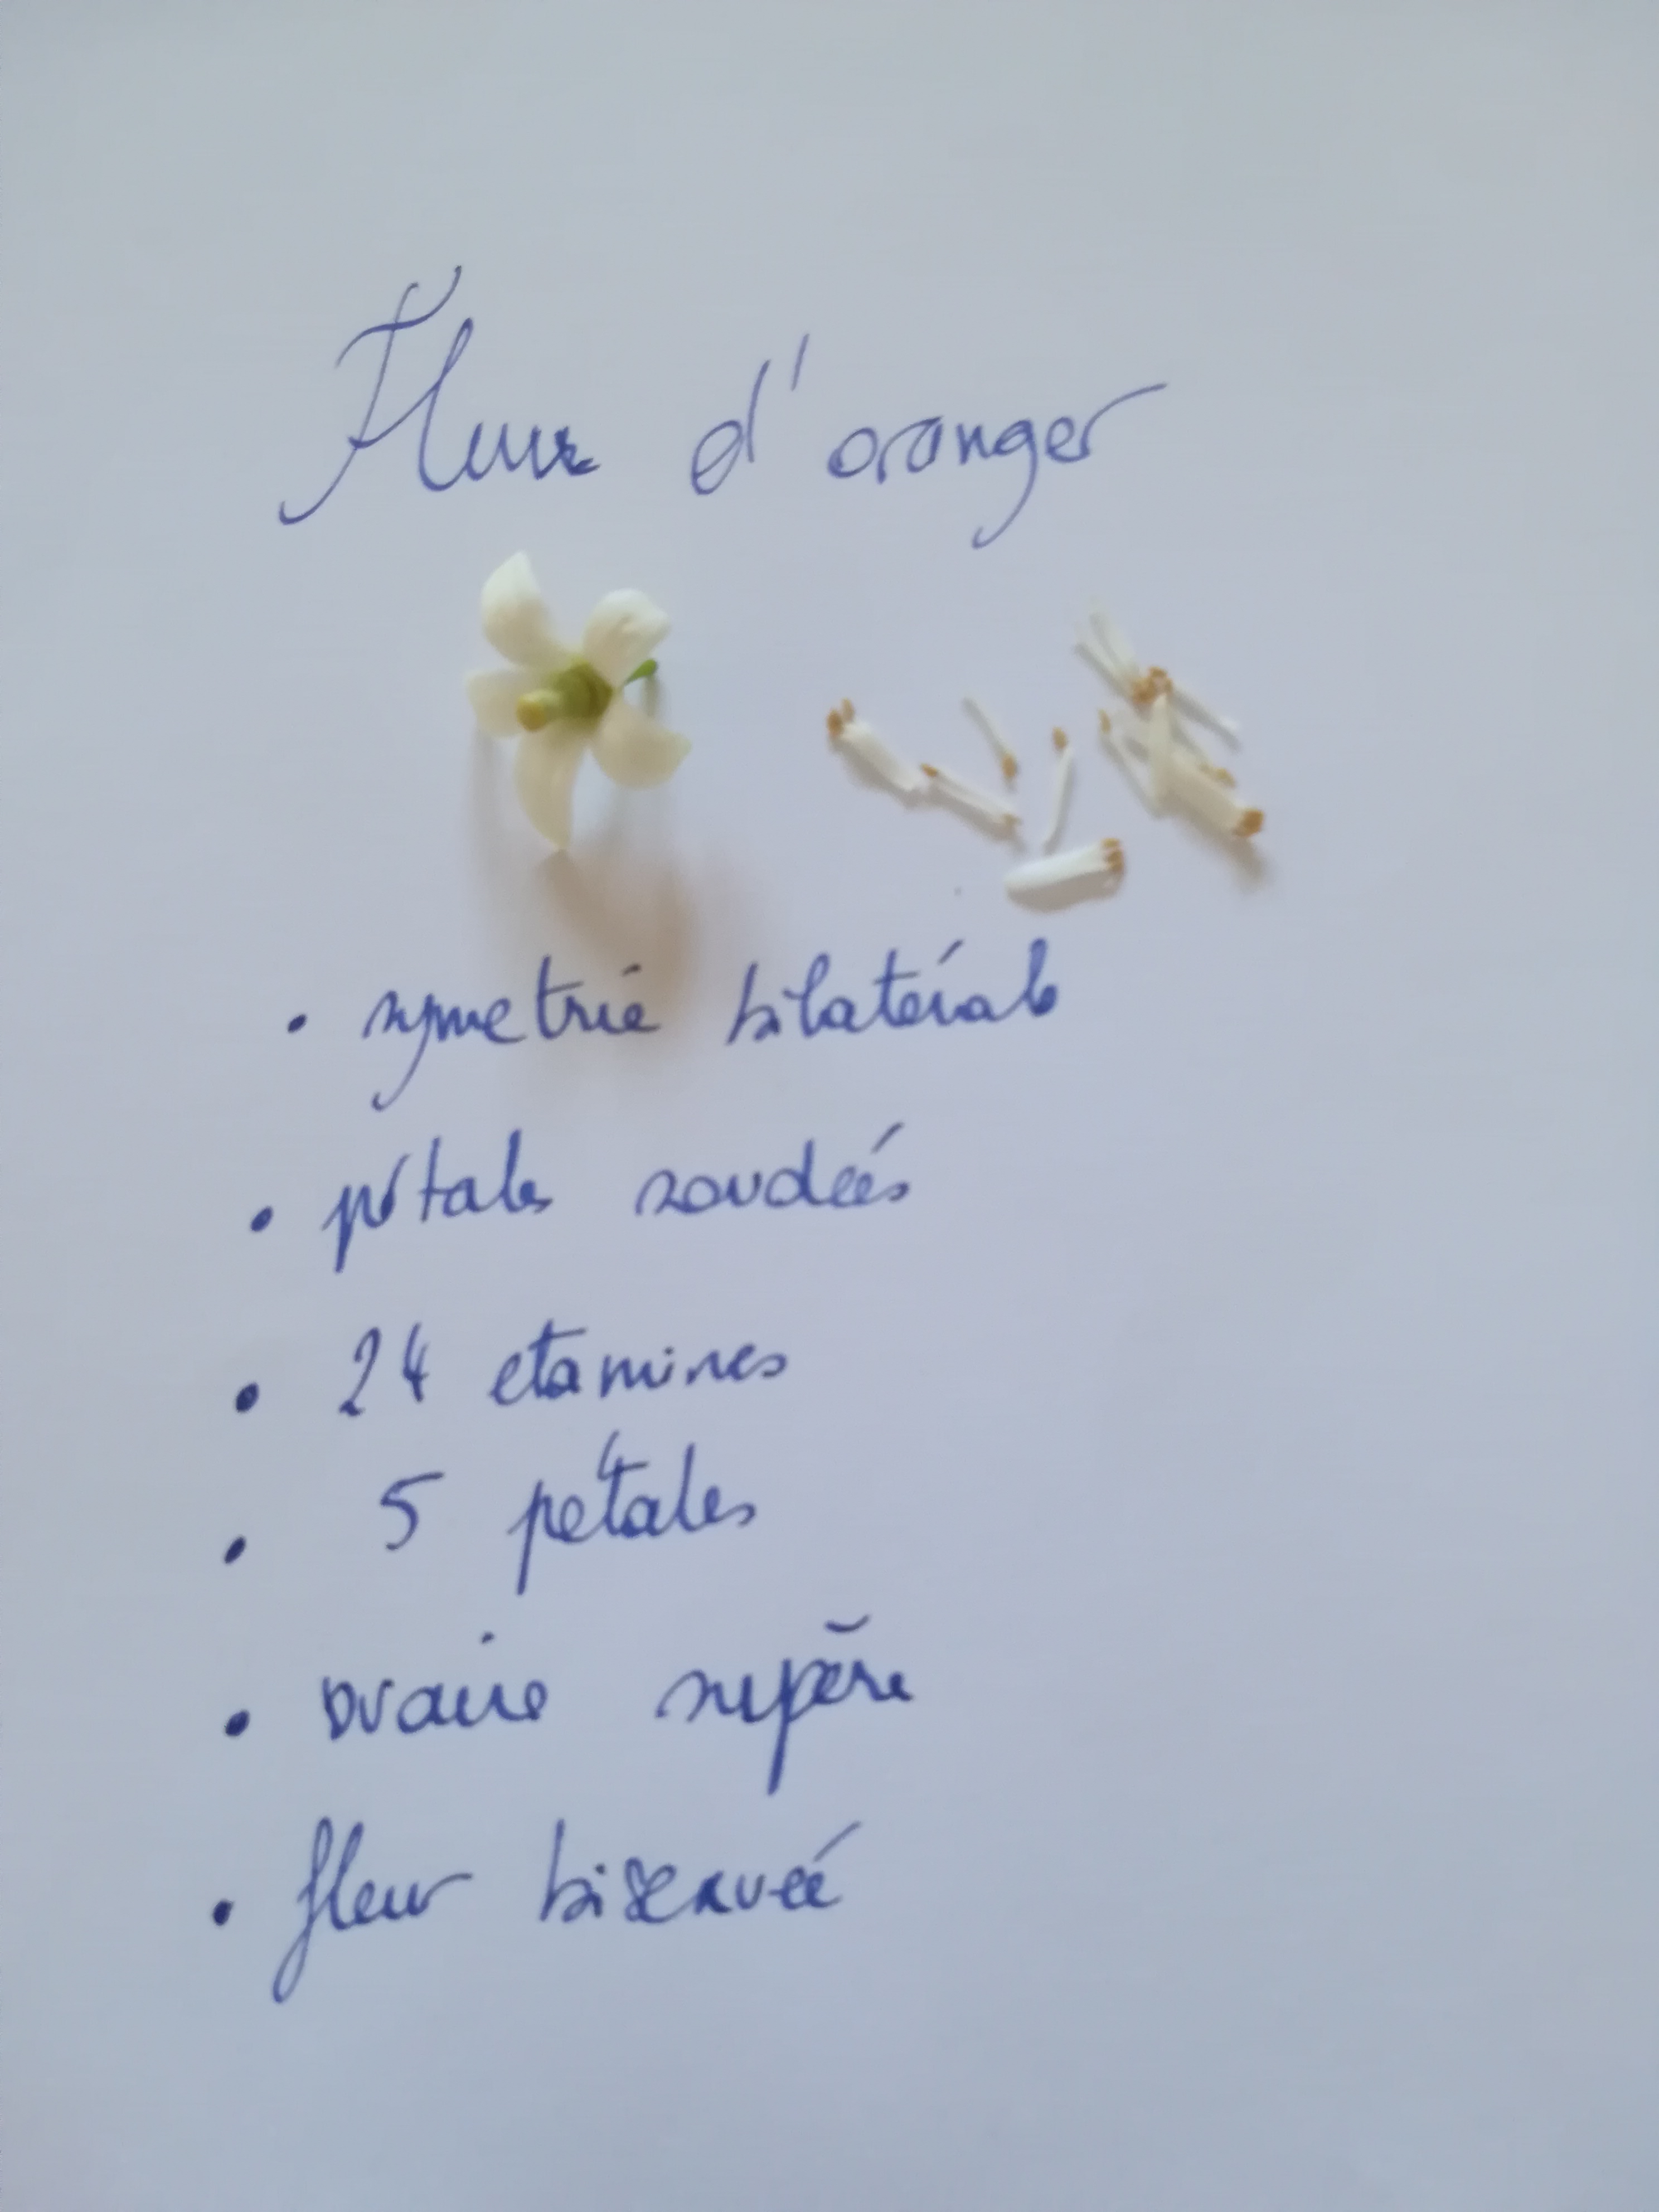 Fleur d'oranger
• symetrie bilatérale
• pétales soudées
• 24 etamines
• 5 pétales
• ovaire supère
• fleur bisexuée